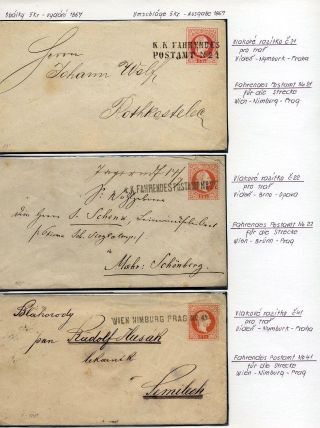 Obálky 5kr - vydání 1867
Umschläge 5kr - Ausgabe 1867
K.K. FAHRENDES
POSTAMT No 21
Herrn
Johann Wolf
Rothkosteletz
Vlakové razítko č.21
pro trať
Vídeň - Nymburk - Praha
Fahrendes Postamt No 21
für die Strecke
Wien - Nimburg - Prag
K.K. FAHRENDES POSTAMT No 22
Mähr. Schönberg
Vlakové razítko č.22
pro trať
Vídeň - Brno - Praha
Fahrendes Postamt No 22
für die Strecke
Wien - Brünn - Prag
WIEN NIMBURG PRAG No 41
Blahorodý
pan Rudolf Husák
lékárník
Semilech
Vlakové razítko č.41
pro trať
Vídeň - Nymburk - Praha
Fahrendes Postamt No 41
für die Strecke
Wien - Nimburg - Prag